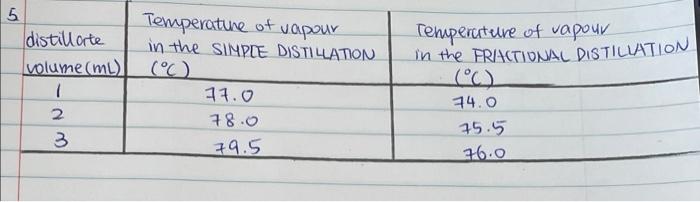 5
distillate volume (mL) | Temperature of vapour in the SIMPLE DISTILLATION (°C) | Temperature of vapour in the FRACTIONAL DISTILLATION (°C)
1 | 77.0 | 74.0
2 | 78.0 | 75.5
3 | 79.5 | 76.0